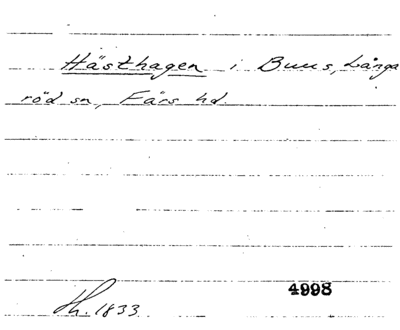 Hästhagen i Buus, Långa
röd sn, Färs hd.
4998
Th. 1833